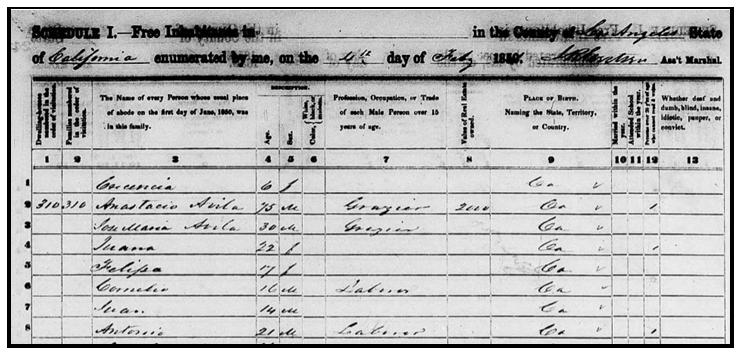 SCHEDULE I.—Free Inhabitants in in the County of Los Angeles State
of California enumerated by me, on the 4th day of Feby 185 Ass't Marshal.
Dwelling-houses numbered in the order of visitation.
Families numbered in the order of visitation.
The Name of every Person whose usual place of abode on the first day of June, 1850, was in this family.
DESCRIPTION.
Age.
Sex.
White, black, or mulatto.
Color,
Profession, Occupation, or Trade of each Male Person over 15 years of age.
Value of Real Estate owned.
PLACE OF BIRTH.
Naming the State, Territory, or Country.
Married within the year.
Attended School within the year.
Persons over 20 y'rs of age who cannot read & write.
Whether deaf and dumb, blind, insane, idiotic, pauper, or convict.
1 2 3 4 5 6 7 8 9 10 11 12 13
1 6 f Ca
2 310 310 Anastacio Avila 75 M Grazier 2000 Ca 1
3 Jose Maria Avila 30 M Grazier Ca
4 Juana 22 f Ca 1
5 Felipa 17 f Ca
6 Cornelio 16 M Labour Ca
7 Juan 14 M Ca
8 Antonio 21 M Labour Ca 1